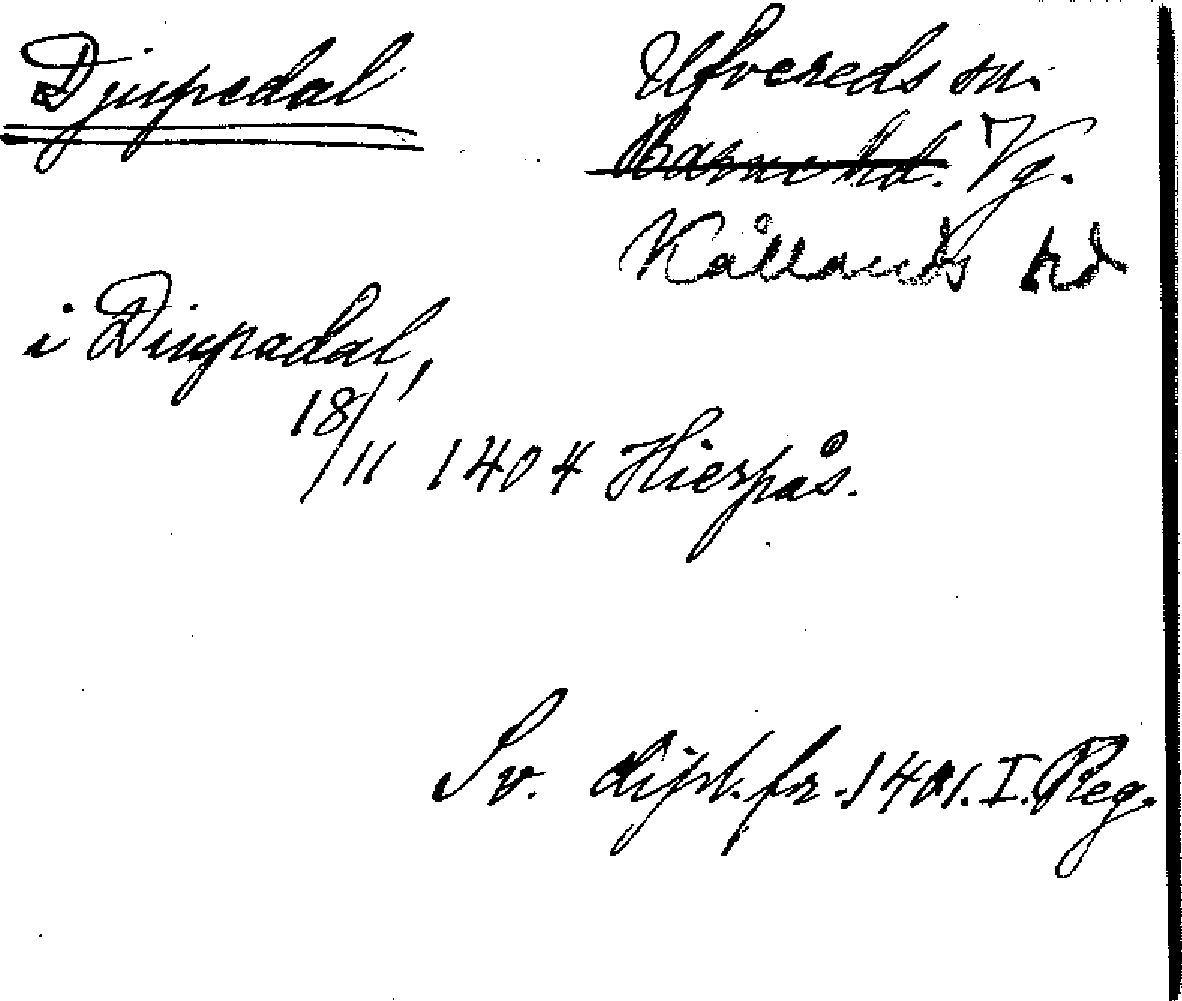 Djupedal
Utvereds sn.
Barne hd. Vg.
Kållands hd
i Diupadal,
18/11 1404 Hierpås.
Sv. dipl. fr. 1401. I. Reg.